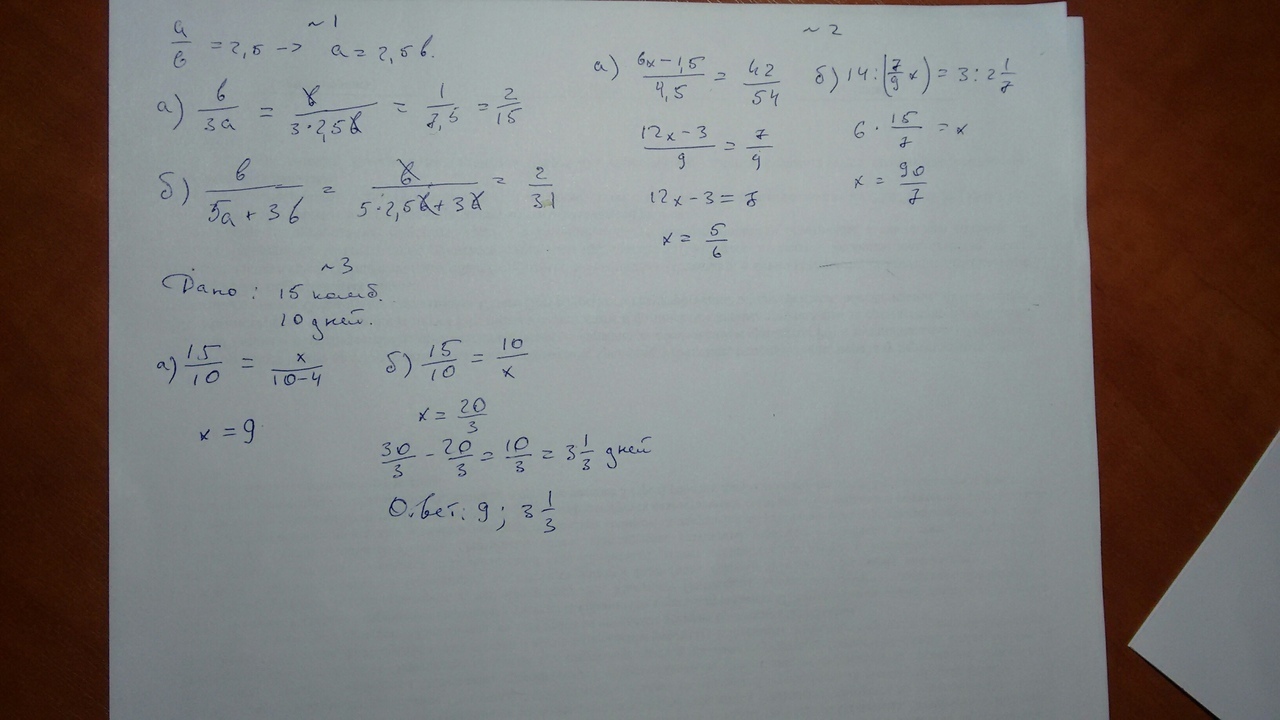 ~ 1
a/в = 2,5 -> a = 2,5в.
а) в/3а = в/3·2,5в = 1/7,5 = 2/15
б) в/5а + 3в = в/5·2,5в + 3в = 2/31
~ 2
а) 6x – 1,5/4,5 = 42/54
12x – 3/9 = 7/9
12x – 3 = 7
x = 5/6
б) 14 : (7/9 x) = 3 : 2 1/7
6 · 15/7 = x
x = 90/7
~ 3
Дано : 15 комб.
10 дней.
а) 15/10 = x/10–4
x = 9
б) 15/10 = 10/x
x = 20/3
30/3 – 20/3 = 10/3 = 3 1/3 дней
Ответ: 9 ; 3 1/3